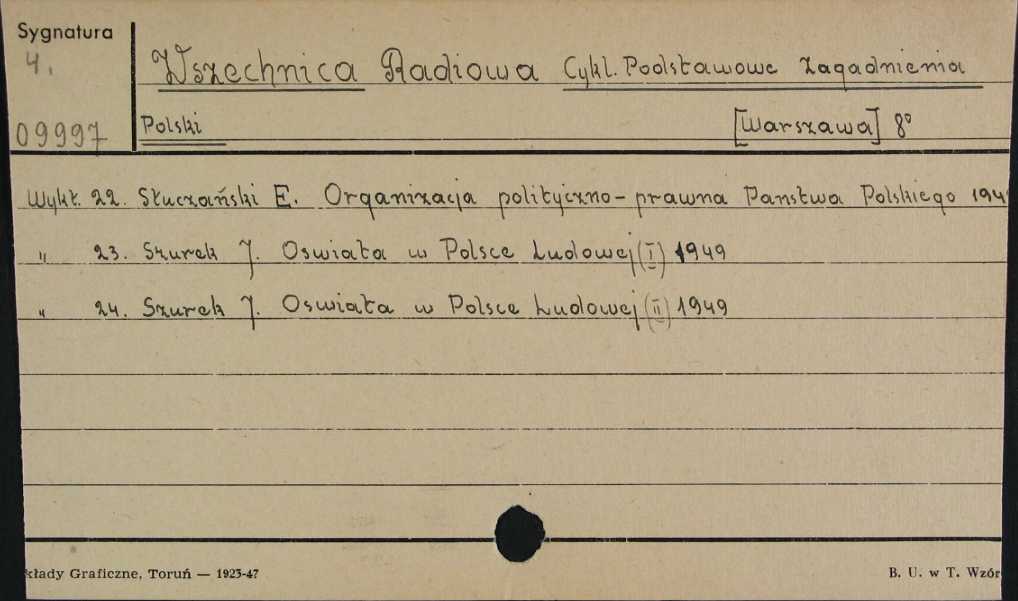 Sygnatura
4.
09997
Wszechnica Radiowa Cykl. Podstawowe Zagadnienia
Polski [Warszawa] 8°
Wykł. 22. Słuczański E. Organizacja polityczno-prawna Państwa Polskiego 194
" 23. Szurek J. Oswiata w Polsce Ludowej (I) 1949
" 24. Szurek J. Oswiata w Polsce Ludowej (II) 1949
kłady Graficzne, Toruń — 1923-47 B. U. w T. Wzór